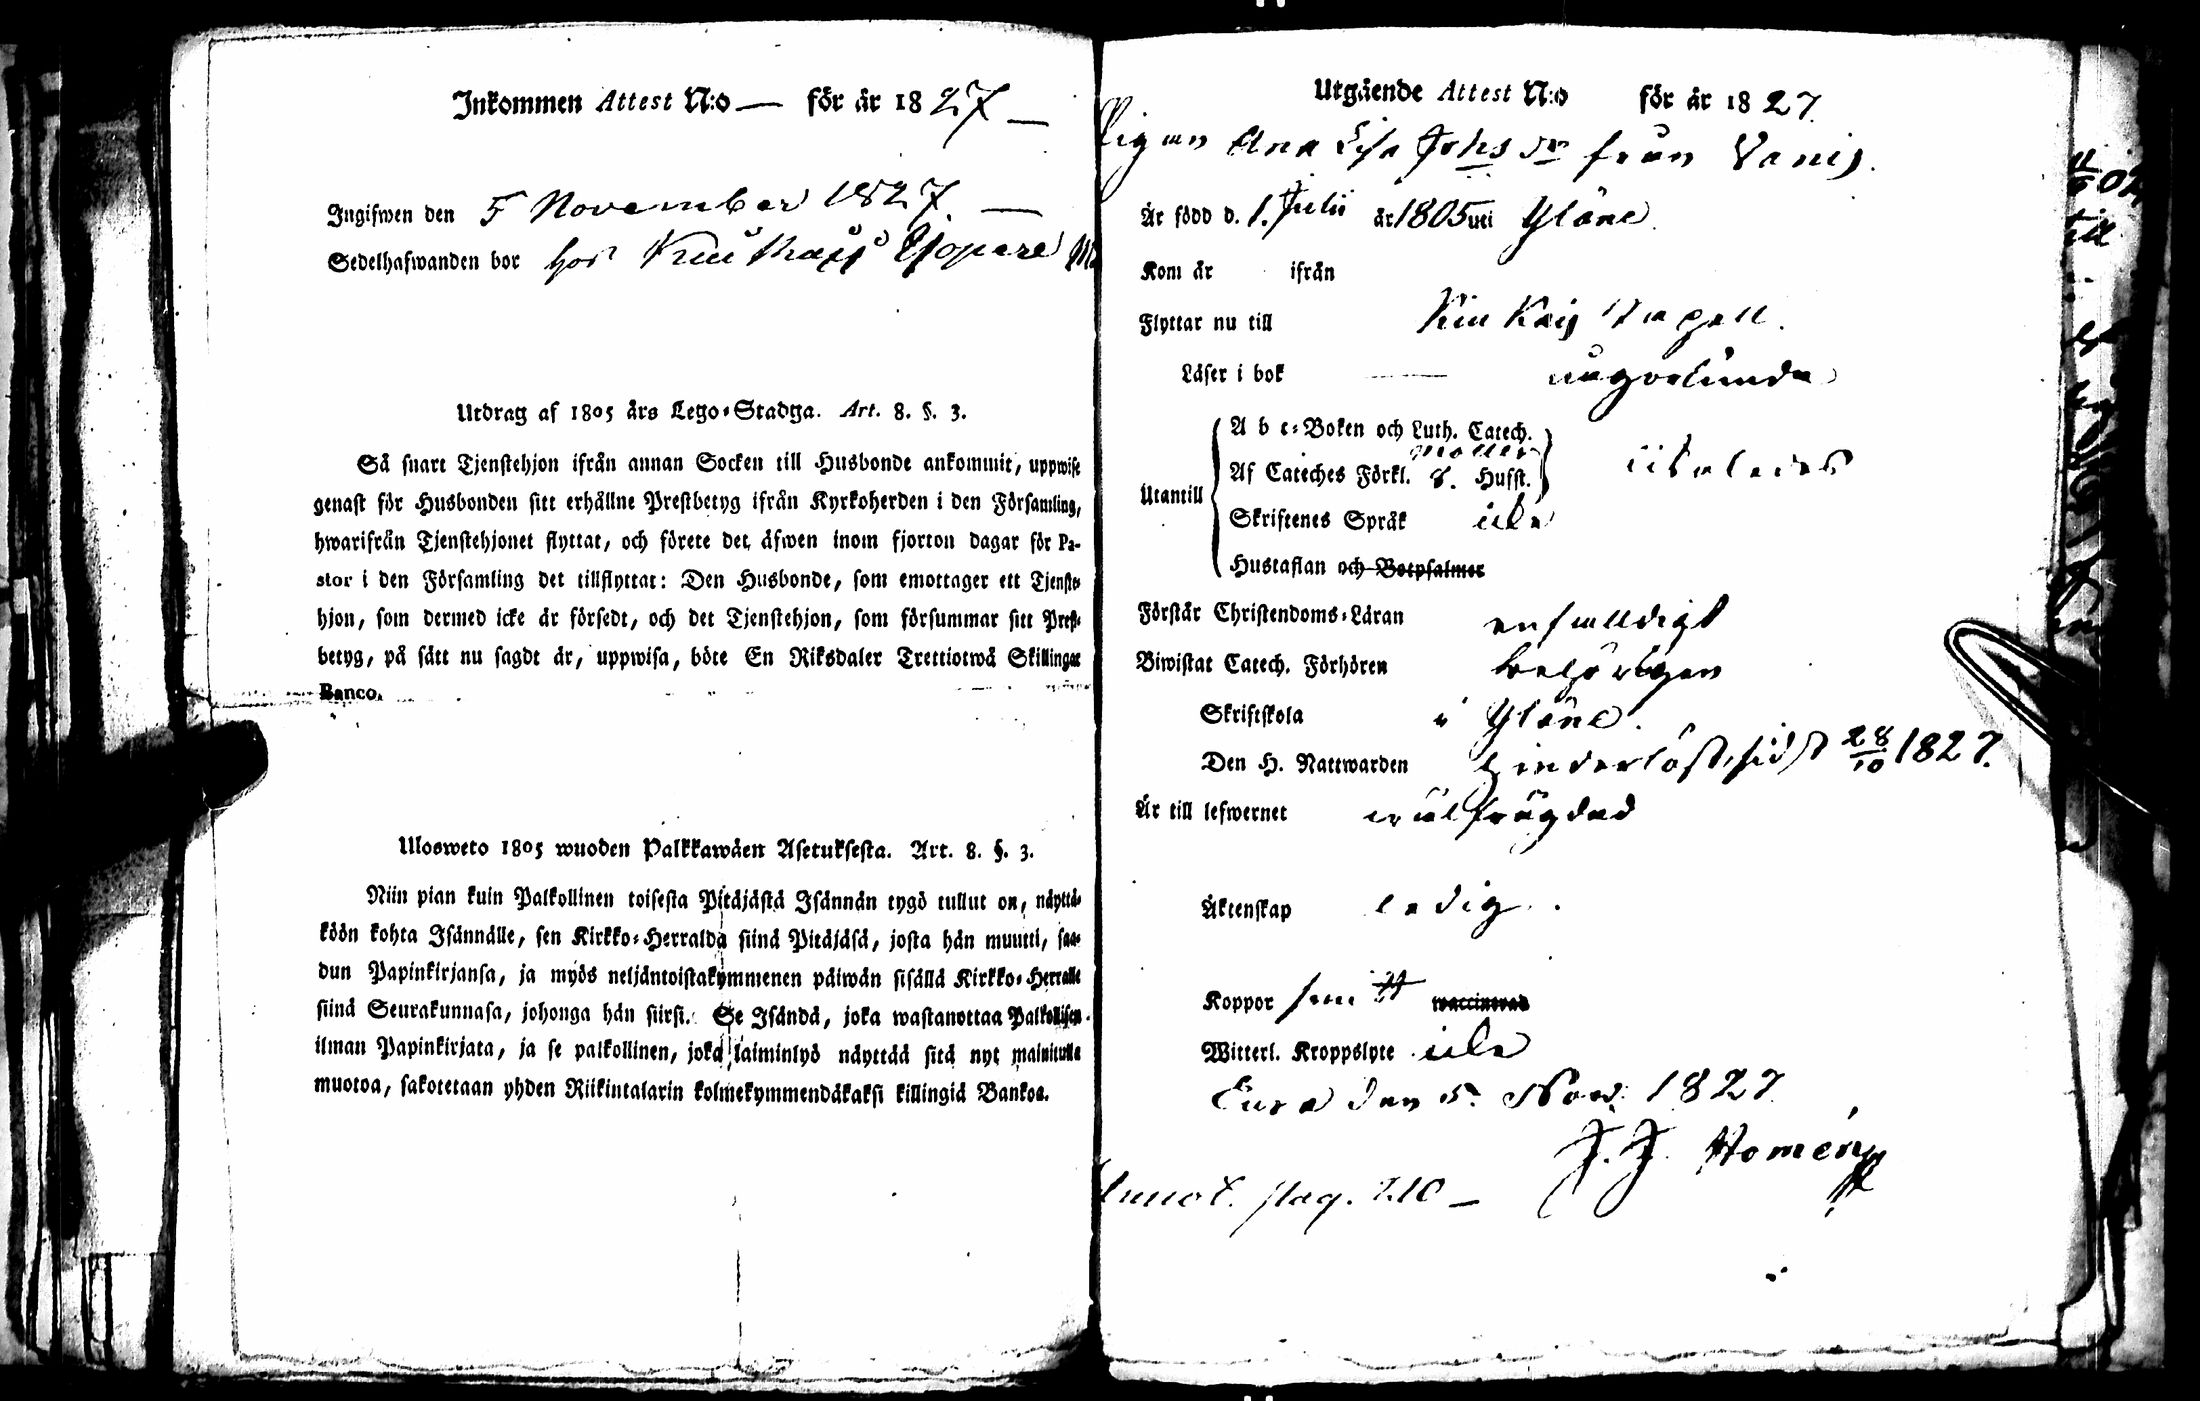 Inkommen Attest N:o — för år 1827 —
Ingifwen den 5 November 1827. —
Sedelhafwanden bor hos
Utdrag af 1805 års Lego-Stadga. Art. 8. §. 3.
Så snart Tjenstehjon ifrån annan Socken till Husbonde ankommit, uppwise
genast för Husbonden sitt erhållne Prestbetyg ifrån Kyrkoherden i den Församling,
hwarifrån Tjenstehjonet flyttat, och förete det äfwen inom fjorton dagar för Pa-
stor i den Församling det tillflyttat: Den Husbonde, som emottager ett Tjenste-
hjon, som dermed icke är försedt, och det Tjenstehjon, som försummar sitt Prest-
betyg, på sätt nu sagdt är, uppwisa, böte En Riksdaler Trettiotwå Skillingar
Banco.
Ulosweto 1805 wuoden Palkkawäen Asetuksesta. Art. 8. §. 3.
Niin pian kuin Palkollinen toisesta Pitäjästä Isännän tygö tullut on, näyttä-
köön kohta Isännälle, sen Kirkko-Herralda siinä Pitäjäsä, josta hän muutti, saa-
dun Papinkirjansa, ja myös neljäntoistakymmenen päiwän sisällä Kirkko-Herralle
siinä Seurakunnasa, johonga hän siirsi. Se Isändä, joka wastanottaa Palkollisen
ilman Papinkirjata, ja se palkollinen, joka laiminlyö näyttää sitä nyt mainitulla
muotoa, sakotetaan yhden Riikintalarin kolmekymmendäkaksi killingiä Bankoa.
Utgående Attest N:o för år 1827.
Pigan Ana Lisa Johsdr från Vanis.
Är född d. 1. Julii år 1805 uti Yläne.
Kom år ifrån
Flyttar nu till Kiukais Capell.
Läser i bok någorlunda
Utantill
A b c-Boken och Luth. Catech.
Af Cateches Förkl. S. Hufst.
Skriftenes Språk
Hustaflan och Botpsalmer
Förstår Christendoms-Läran enfalldigt
Biwistat Catech. Förhören behörigen
Skriftskola i Yläne.
Den H. Nattwarden hinderlöst, sidst 28/10 1827.
Är till lefwernet wälfrägdad
Äktenskap ledig.
Koppor haft waccinerad
Witterl. Kroppslyte
Eura den 5. Nov. 1827.
J. J. Homén
Annot. pag. 210 —